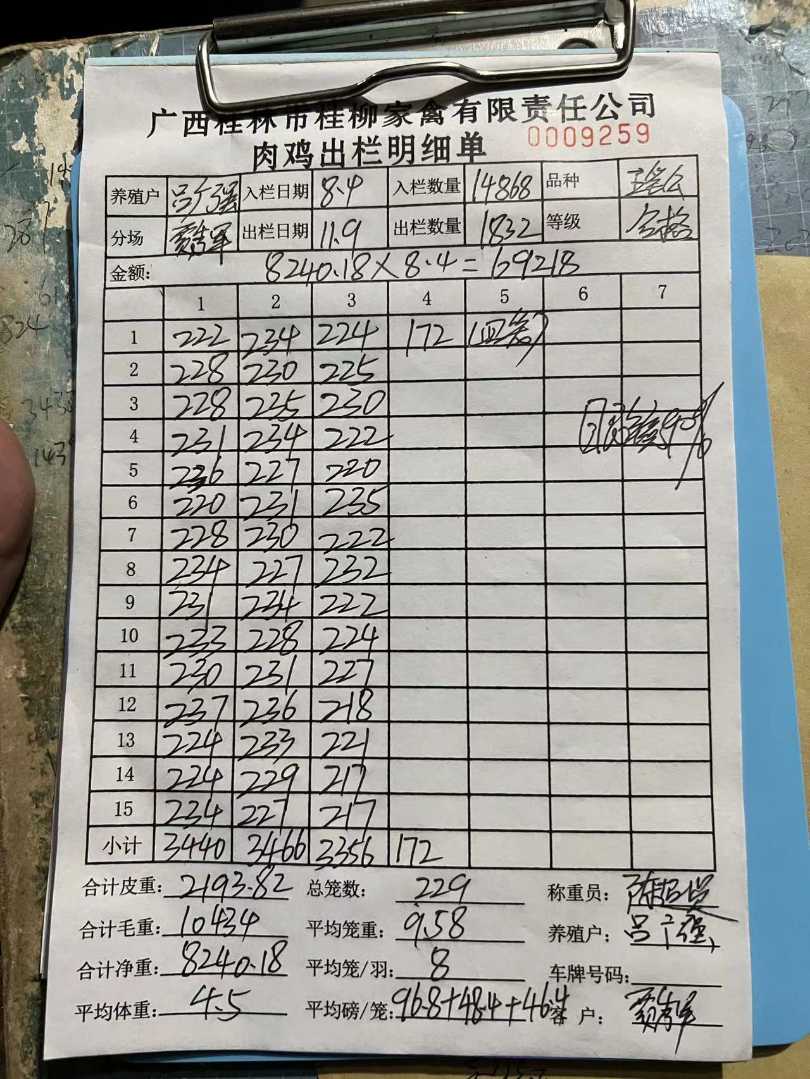 广西桂林市桂柳家禽有限责任公司
肉鸡出栏明细单 0009259
养殖户 吕广强 入栏日期 8.4 入栏数量 14868 品种
分场 出栏日期 11.9 出栏数量 1832 等级 合格
金额: 8240.18×8.4=69218
1 2 3 4 5 6 7
1 222 234 224 172 (四笼)
2 228 230 225
3 228 235 230
4 231 234 222
5 236 227 220
6 220 231 235
7 228 230 222
8 234 227 232
9 231 234 222
10 233 228 224
11 230 231 227
12 237 236 218
13 224 233 221
14 224 229 217
15 234 227 217
小计 3440 3466 3356 172
合计皮重: 2193.82 总笼数: 229 称重员:
合计毛重: 10434 平均笼重: 9.58 养殖户: 吕广强
合计净重: 8240.18 平均笼/羽: 8 车牌号码:
平均体重: 4.5 平均磅/笼: 96.8+48.4+46.4 客户: